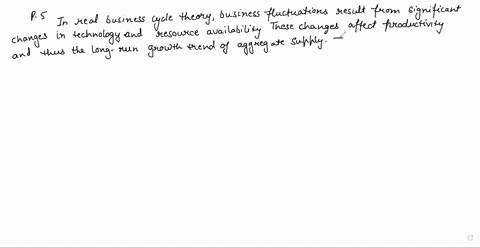 P.5 In real business cycle theory, business fluctuations result from significant
changes in technology and resource availability. These changes affect productivity
and thus the long-run growth trend of aggregate supply.